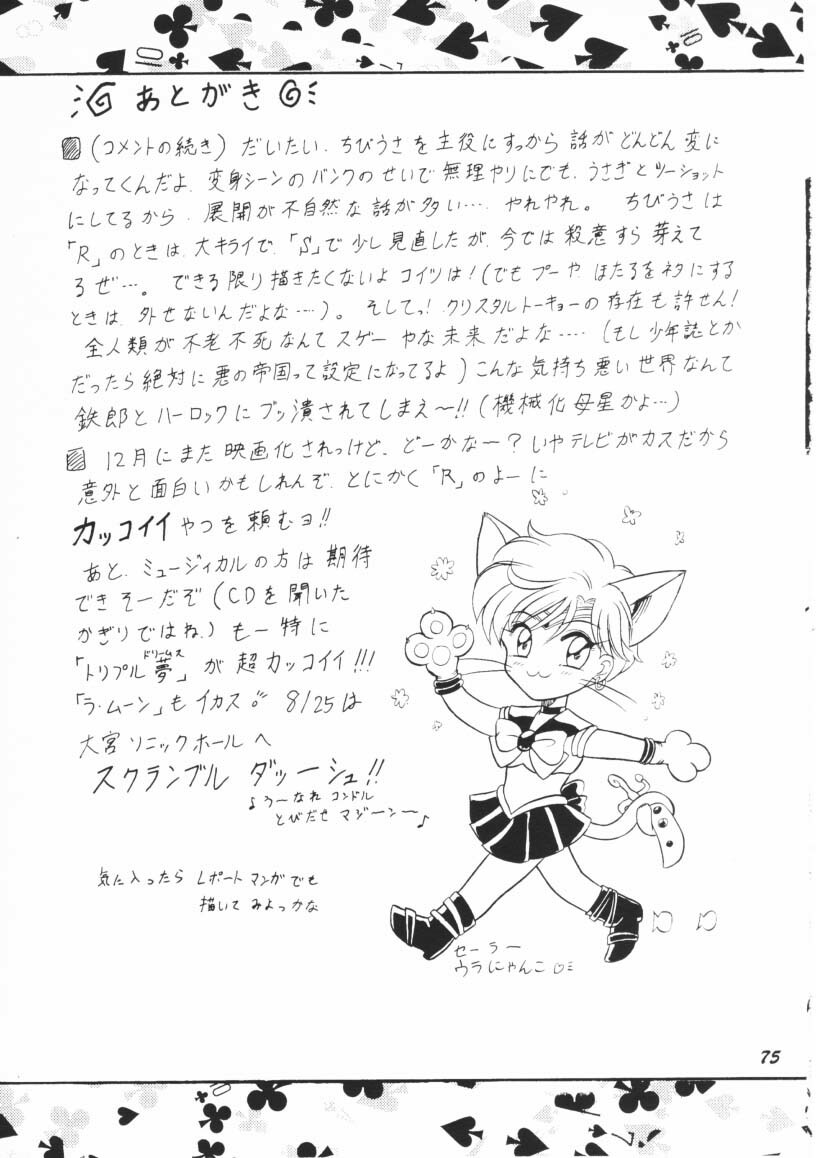 あとがき
(コメントの続き) だいたい、ちびうさを主役にすっから話がどんどん変に
なってくんだよ、変身シーンのバンクのせいで無理やりにでも、うさぎとツーショット
にしてるから、展開が不自然な話が多い…、やれやれ。 ちびうさは
「R」のときは、大キライで、「S」で少し見直したが、今では殺意すら芽えて
るぜ…。 できる限り描きたくないよコイツは!(でもプーや、ほたるをネタにする
ときは、外せないんだよな…)。 そしてっ!クリスタルトーキョーの存在も許せん!
全人類が不老不死なんてスゲーやな未来だよな…(もし少年誌とか
だったら絶対に悪の帝国って設定になってるよ)こんな気持ち悪い世界なんて
鉄郎とハーロックにブッ潰されてしまえ~!!(機械化母星かよ…)
12月にまた映画化されっけど、どーかな~?いやテレビがカスだから
意外と面白いかもしれんぞ、とにかく「R」のよーに
カッコイイやつを頼むヨ!!
あと、ミュージィカルの方は期待
できそーだぞ(CDを聞いた
かぎりではね、)もー特に
ドリームス
「トリプル夢」が超カッコイイ!!!
「ラ・ムーン」もイカス。 8/25は
大宮ソニックホールへ
スクランブル ダッーシュ!!
♪うーなれ コンドル
とびだせ マジーンー♪
気に入ったら レポートマンガでも
描いてみよっかな
セーラー
ウラにゃんこ
75
10
10
10
7